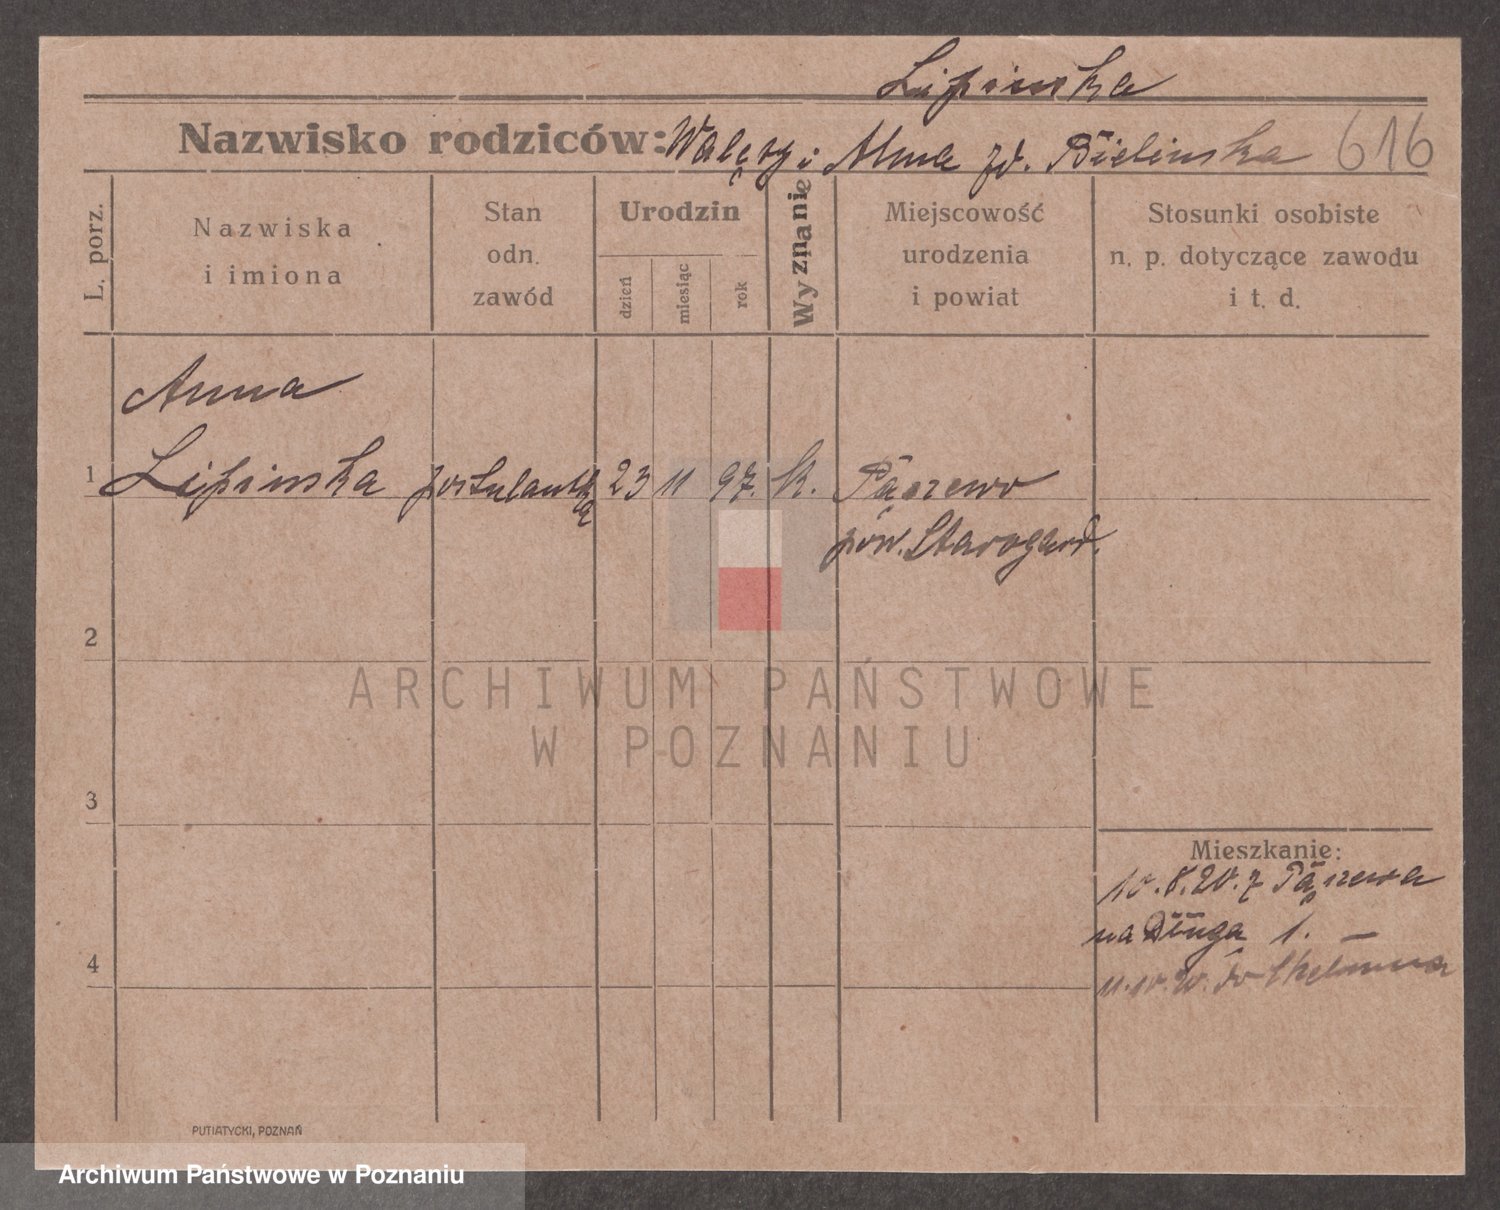 Lipinska
Nazwisko rodziców: Walęty i Anna zd. Bielinska 616
L. porz.
Nazwiska
i imiona
Stan
odn.
zawód
Urodzin
dzień
miesiąc
rok
Wyznanie
Miejscowość
urodzenia
i powiat
Stosunki osobiste
n. p. dotyczące zawodu
i t. d.
Anna
1 Lipinska postulantka 23 11 97. k. Pączewo
pow. Starogard.
2
ARCHIWUM PAŃSTWOWE
W POZNANIU
3
Mieszkanie:
10.8.20. z Pączewa
na Długa 1.
4
11.10.20. do Chełmna
PUTIATYCKI, POZNAŃ
Archiwum Państwowe w Poznaniu